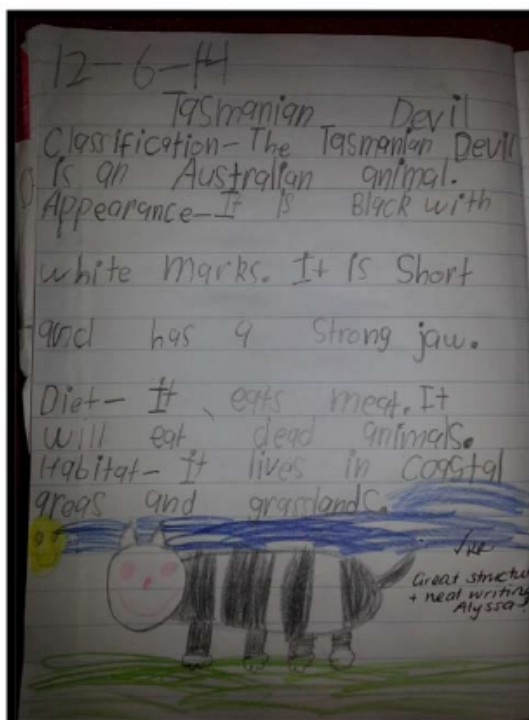 12-6-14
Tasmanian Devil
Classification- The Tasmanian Devil
is an Australian animal.
Appearance- It is Black with
white marks. It is Short
and has a Strong jaw.
Diet- It eats meat. It
will eat dead animals.
Habitat- It lives in Coastal
areas and grasslands.
Great structu
+ neat writing
Alyssa